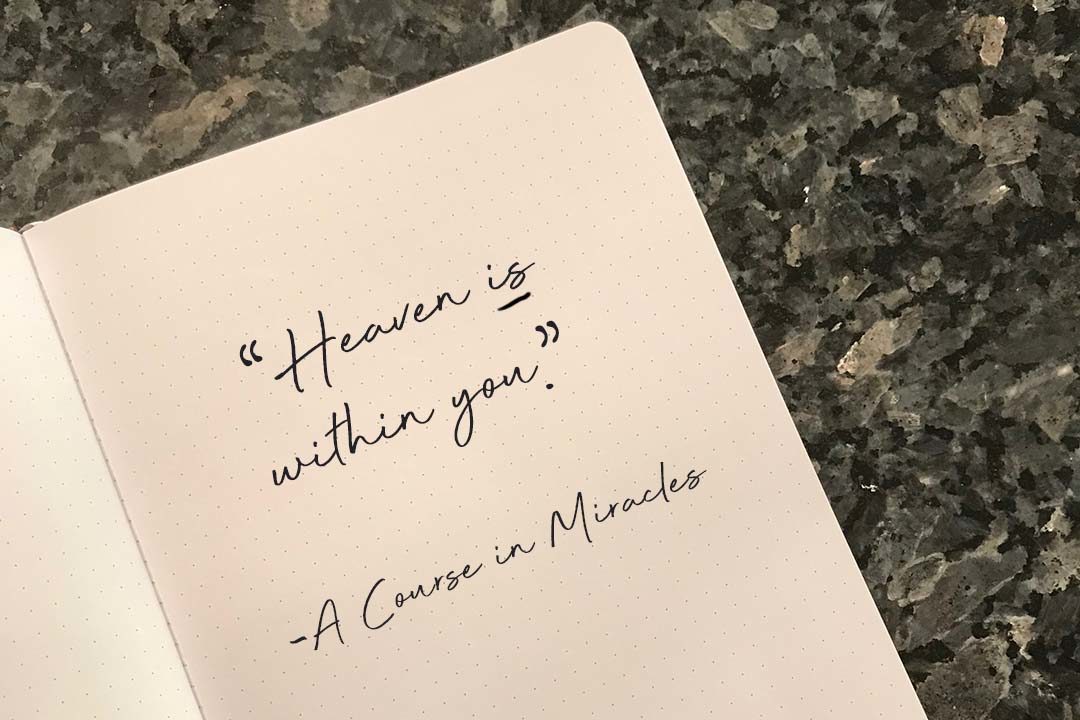 “Heaven is
within you”.
-A Course in Miracles